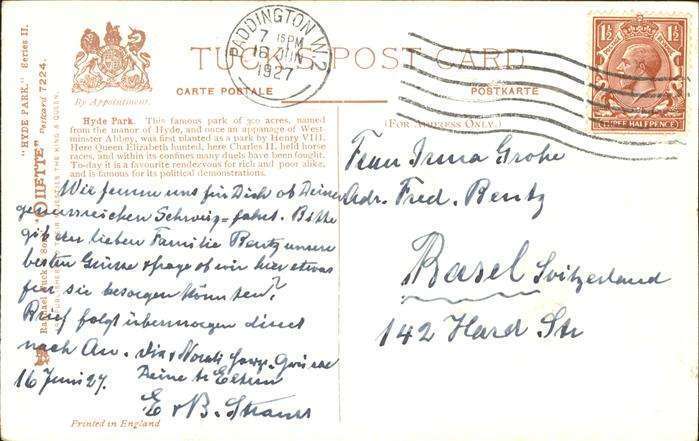 PADDINGTON. W.2.
7 15 PM
16 JUN
1927
1½ 1½
THREE HALFPENCE
"HYDE PARK." Series II.
"OILETTE" Postcard 7224.
Raphael Tuck & Sons
By Appointment.
TUCK'S POST CARD
CARTE POSTALE
POSTKARTE
(FOR ADDRESS ONLY.)
Hyde Park. This famous park of 390 acres, named
from the manor of Hyde, and once an appanage of West-
minster Abbey, was first planted as a park by Henry VIII.
Here Queen Elizabeth hunted, here Charles II. held horse
races, and within its confines many duels have been fought.
To-day it is a favourite rendezvous for rich and poor alike,
and is famous for its political demonstrations.
Wir freuen uns für Dich ob Deiner
genussreichen Schweiz-fahrt. Bitte
gib der lieben Familie Bentz unsere
besten Grüsse & frage ob wir hier etwas
für sie besorgen könnten?
Brief folgt übermorgen direct
nach
16 Juni 27. Deine tr Eltern
E & B. Strauss
Frau Irma Grohe
Adr. Fred. Bentz
Basel Switzerland
142 Hard Str
Printed in England